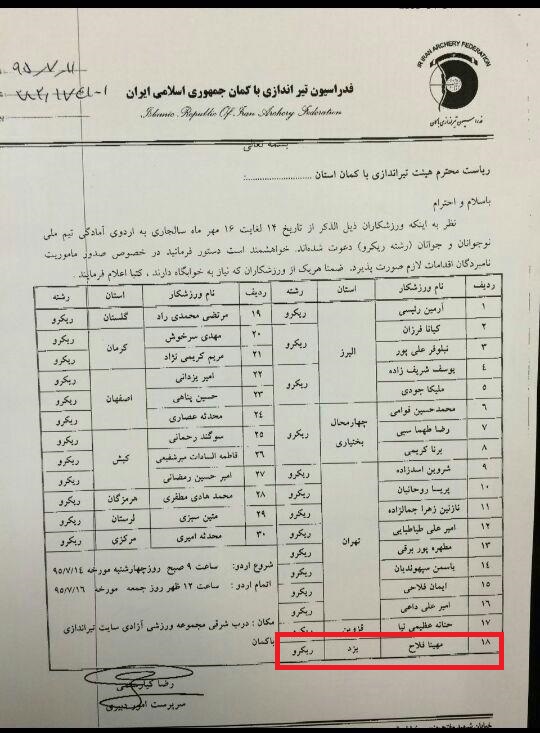 IR IRAN ARCHERY FEDERATION
فدراسیون تیراندازی باکمان
فدراسیون تیر اندازی با کمان جمهوری اسلامی ایران
Islamic Republic Of Iran Archery Federation
۹۵/۷/۱۱
بسمه تعالی
ریاست محترم هیئت تیراندازی با کمان استان ..........................:
باسلام و احترام
نظر به اینکه ورزشکاران ذیل الذکر از تاریخ ۱۴ لغایت ۱۶ مهر ماه سالجاری به اردوی آمادگی تیم ملی
نوجوانان و جوانان (رشته ریکرو) دعوت شده‌اند. خواهشمند است دستور فرمائید در خصوص صدور ماموریت
نامبردگان اقدامات لازم صورت پذیرد. ضمنا هریک از ورزشکاران که نیاز به خوابگاه دارند ، کتبا اعلام فرمایند
ردیف نام ورزشکار استان رشته ردیف نام ورزشکار استان رشته
۱ آرمین رئیسی البرز ریکرو ۱۹ مرتضی محمدی راد گلستان ریکرو
۲ کیانا فرزان ریکرو ۲۰ مهدی سرخوش کرمان ریکرو
۳ نیلوفر علی پور ۲۱ مریم کریمی نژاد ریکرو
۴ یوسف شریف زاده ریکرو ۲۲ امیر یزدانی اصفهان ریکرو
۵ ملیکا جودی ۲۳ حسین پناهی ریکرو
۶ محمدحسین قوامی چهارمحال بختیاری ریکرو ۲۴ محدثه عصاری ریکرو
۷ رضا طهما سبی ۲۵ سوگند رحمانی کیش ریکرو
۸ برنا کریمی ۲۶ فاطمه السادات میرشفیعی ریکرو
۹ شروین اسدزاده تهران ریکرو ۲۷ امیر حسین رمضانی ریکرو
۱۰ پریسا روحانیان ریکرو ۲۸ محمد هادی مظفری هرمزگان ریکرو
۱۱ نازنین زهرا جمالزاده ریکرو ۲۹ متین سبزی لرستان ریکرو
۱۲ امیر علی طباطبایی ریکرو ۳۰ محدثه امیری مرکزی ریکرو
۱۳ مطهره پور برقی ریکرو
۱۴ یاسمن سپهوندیان ریکرو
۱۵ ایمان فلاحی ریکرو
۱۶ امیر علی داعی ریکرو
۱۷ حنانه عظیمی نیا قزوین ریکرو
۱۸ مهیتا فلاح یزد ریکرو
شروع اردو : ساعت ۹ صبح روزچهارشنبه مورخه ۹۵/۷/۱۴
اتمام اردو : ساعت ۱۲ ظهر روز جمعه مورخه ۹۵/۷/۱۶
مکان : درب شرقی مجموعه ورزشی آزادی سایت تیراندازی
باکمان
رضا
سرپرست امور دبیری